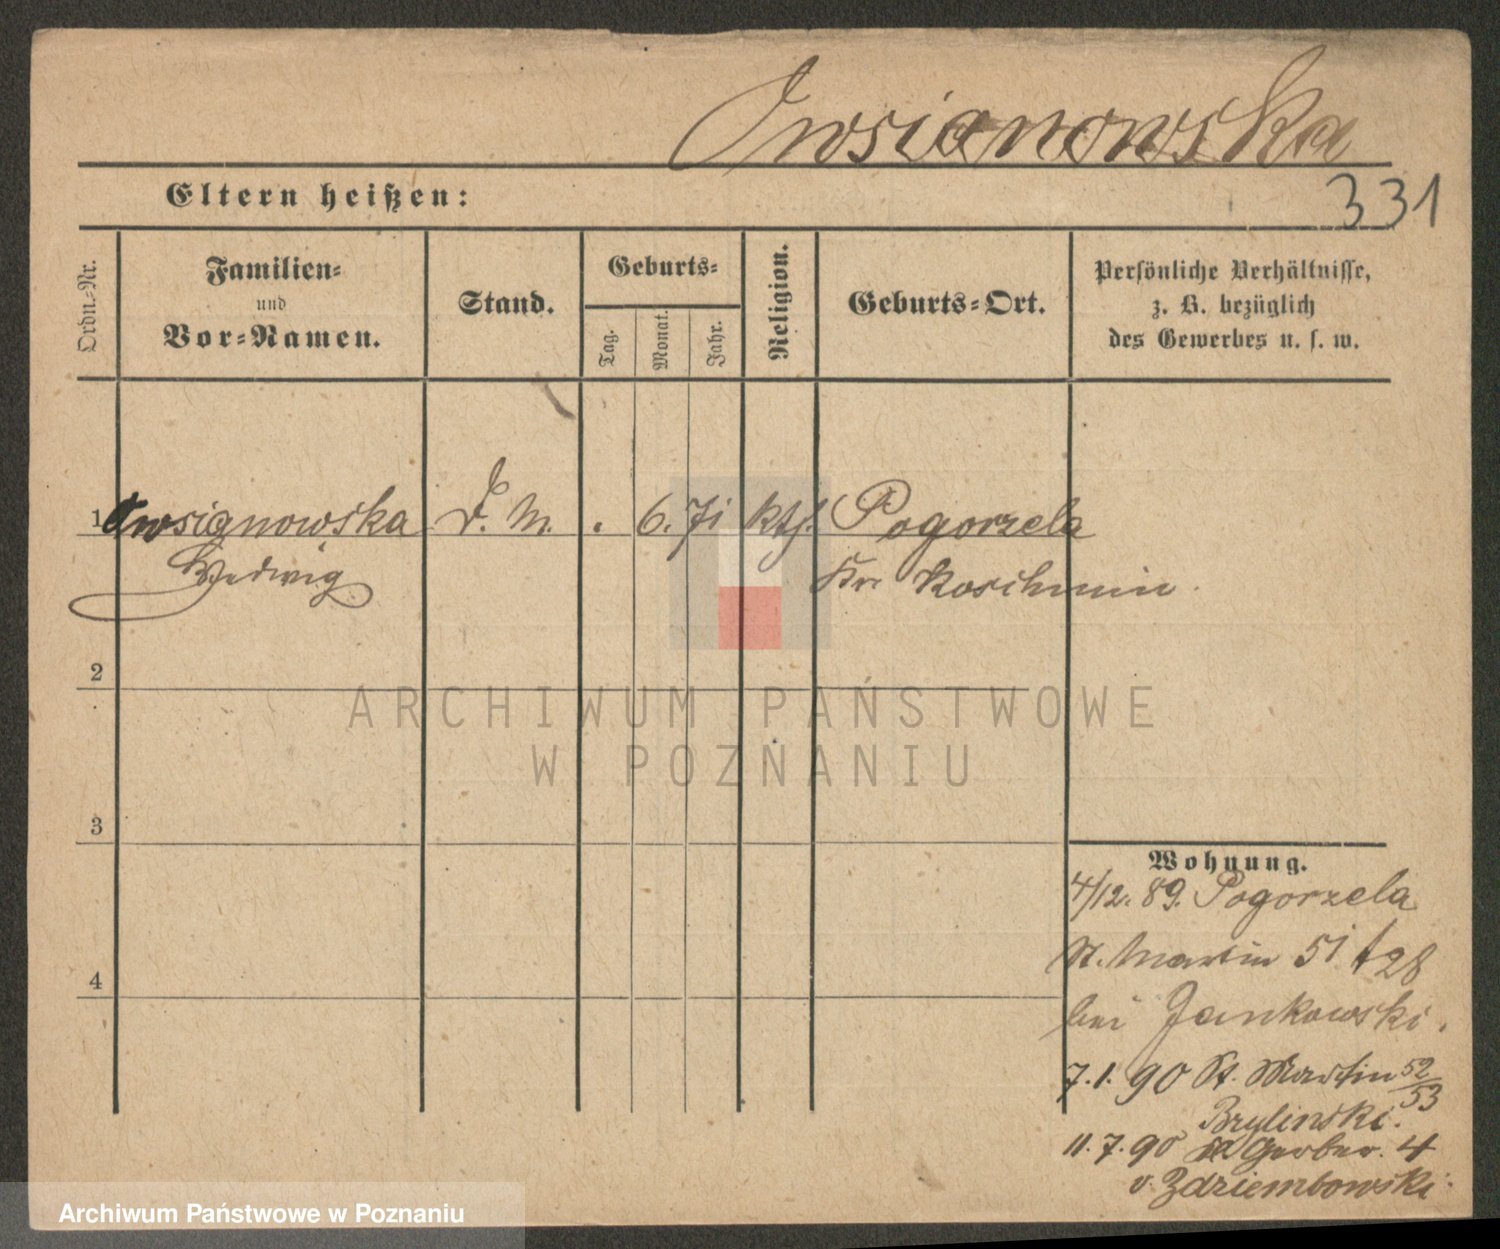 Owsianowska
Eltern heißen:
331
Ordn.-Nr.
Familien-
und
Vor-Namen.
Stand.
Geburts-
Tag.
Monat.
Jahr.
Religion.
Geburts-Ort.
Persönliche Verhältnisse,
z. B. bezüglich
des Gewerbes u. s. w.
1 Owsianowska D. M. . 6. 71 kth. Pogorzela
Hedwig Kr. Koschmin
2
3
4
Wohnung.
4/12. 89. Pogorzela
St. Martin 51 28
bei Jankowski.
7. 1. 90 St. Martin 52/53
Brylinski.
11. 7. 90 Gerber. 4
v. Zdziembowski
ARCHIWUM PAŃSTWOWE
W POZNANIU
Archiwum Państwowe w Poznaniu